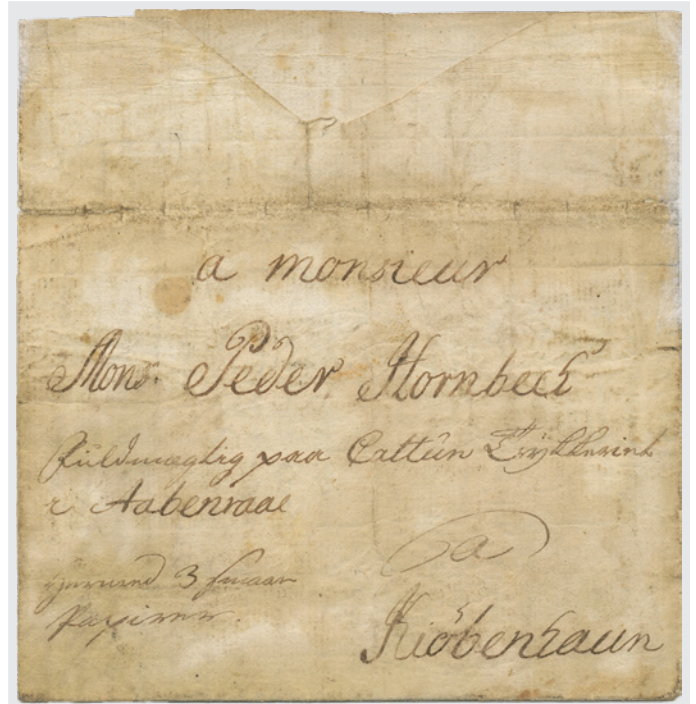 a monsieur
Mons. Peder Hornbech
Fuldmægtig paa Cattûn Trÿkkeriet
i Aabenraae
Hermed 3 smaae
Papirer.
a
Kiöbenhaun